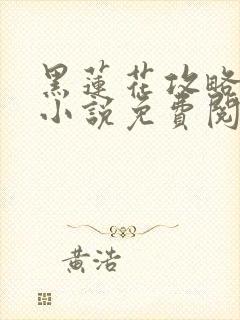 黑蓮花攻略
小說免費閱
黃浩